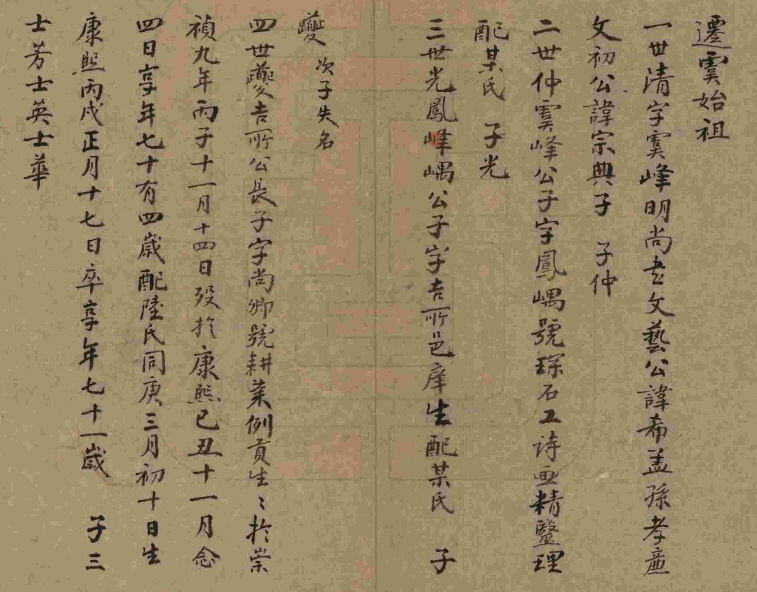 遷雲始祖
一世清字雲峰明尚書文藝公諱希孟孫孝廉
文初公諱宗典子　子仲
二世仲雲峰公子字鳳嵎號琛石工诗画精毉理
配某氏　子光
三世光鳳嵎公子字吉所邑庠生配某氏　子
夔　次子失名
四世夔吉所公長子字尚卿號耕菜例貢生〻於崇
禎九年丙子十一月十四日歿於康熙己丑十一月念
四日享年七十有四歲配陸氏同庚三月初十日生
康熙丙戌正月十七日卒享年七十一歲　子三
士芳士英士華